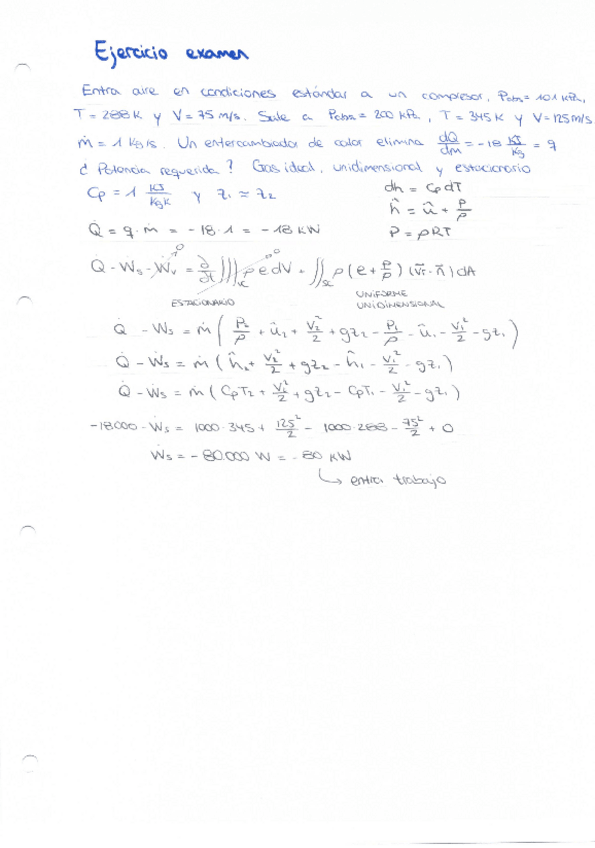 Ejercicio examen
Entra aire en condiciones estándar a un compresor, Pabs = 101 kPa,
T = 288 K y V = 75 m/s. Sale a Pabs = 200 kPa, T = 345 K y V = 125 m/s
ṁ = 1 Kg/s. Un entercambiador de calor elimina dQ/dm = -18 KJ/Kg = q
¿ Potencia requerida? Gas ideal, unidimensional y estacionario
Cp = 1 KJ/KgK y z₁ ≈ z₂
dh = Cp dT
ĥ = û + P/ρ
P = ρRT
Q̇ = q · ṁ = -18 · 1 = -18 KW
Q̇ - Ẇs - Ẇv = ∂/∂t ∭vc ρ e dV + ∬sc ρ (e + P/ρ) (v̄r · n̄) dA
0 0
ESTACIONARIO
UNIFORME
UNIDIMENSIONAL
Q̇ - Ẇs = ṁ ( P₂/ρ + û₂ + V₂²/2 + gz₂ - P₁/ρ - û₁ - V₁²/2 - gz₁ )
Q̇ - Ẇs = ṁ ( ĥ₂ + V₂²/2 + gz₂ - ĥ₁ - V₁²/2 - gz₁ )
Q̇ - Ẇs = ṁ ( CpT₂ + V₂²/2 + gz₂ - CpT₁ - V₁²/2 - gz₁ )
-18.000 - Ẇs = 1000·345 + 125²/2 - 1000·288 - 75²/2 + 0
Ẇs = -80.000 W = -80 KW
↳ entra trabajo